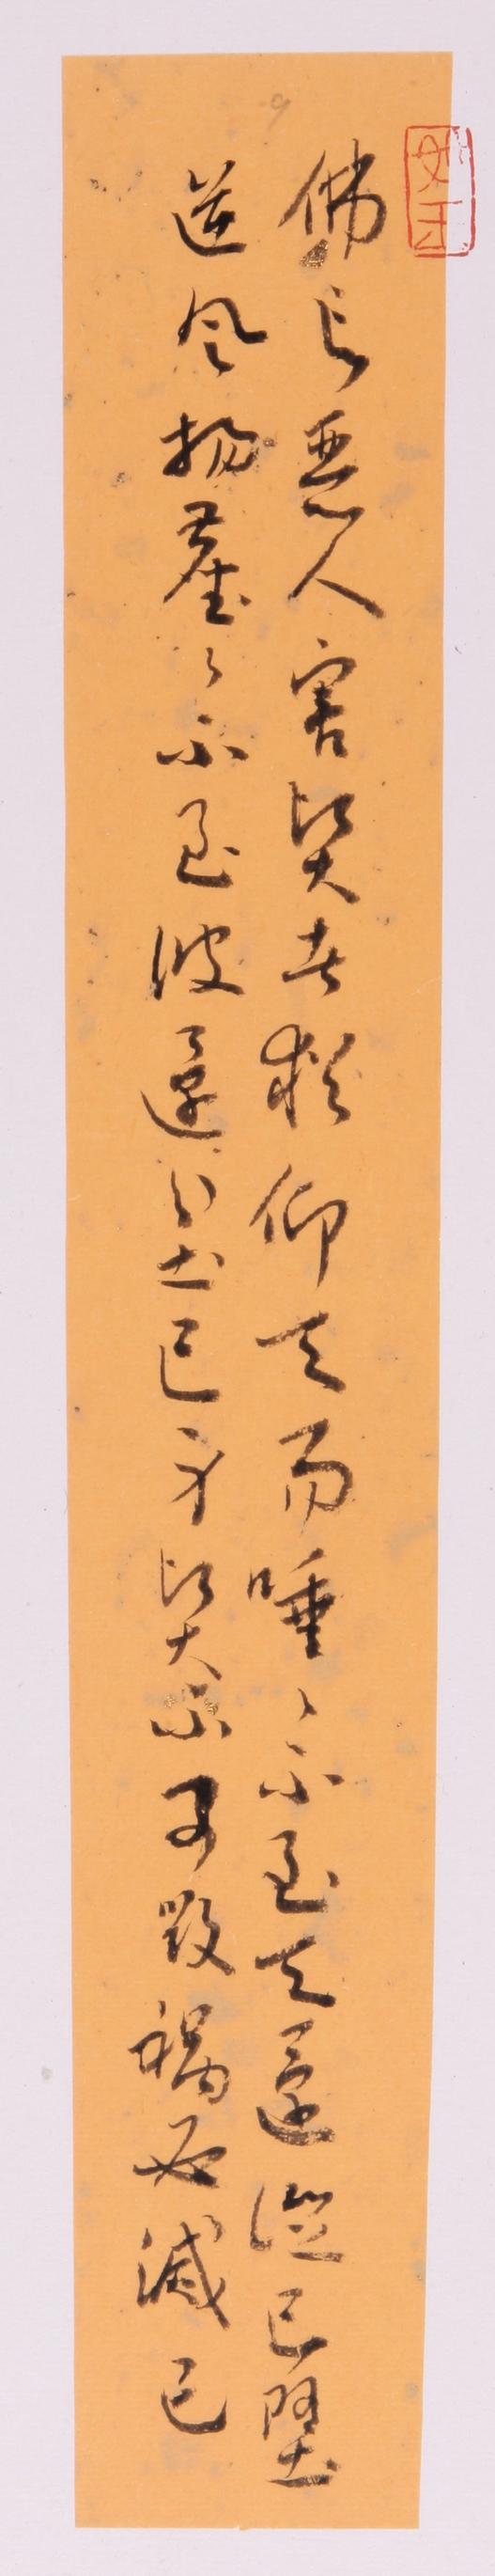 佛言惡人害賢者猶仰天而唾〻不至天還從己墮
逆風揚塵〻不至彼還坌己身賢不可毀禍必滅己